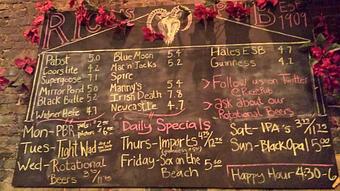 Est 1909
Pabst 5.0
Coors Lite 4.2
Supergoose 7.1
Mirror Pond 5.0
Black Butte 5.2
Widmer Hefe 4.7
Blue Moon 5.4
Mac n Jacks 5.2
Spire
Manny's 5.4
Irish Death 7.8
Newcastle 4.7
Hales ESB 4.7
Guinness 4.2
> Follow us on Twitter
> ask about our
Rotational Beers
Daily Specials
Mon- PBR
Tues- Tight Wad
Wed- Rotational
Beers
Thurs- Imports
Friday- Sex on the
Beach 5.00
Sat- IPA's
Sun- Black Opal 5.00
Happy Hour 4:30-6